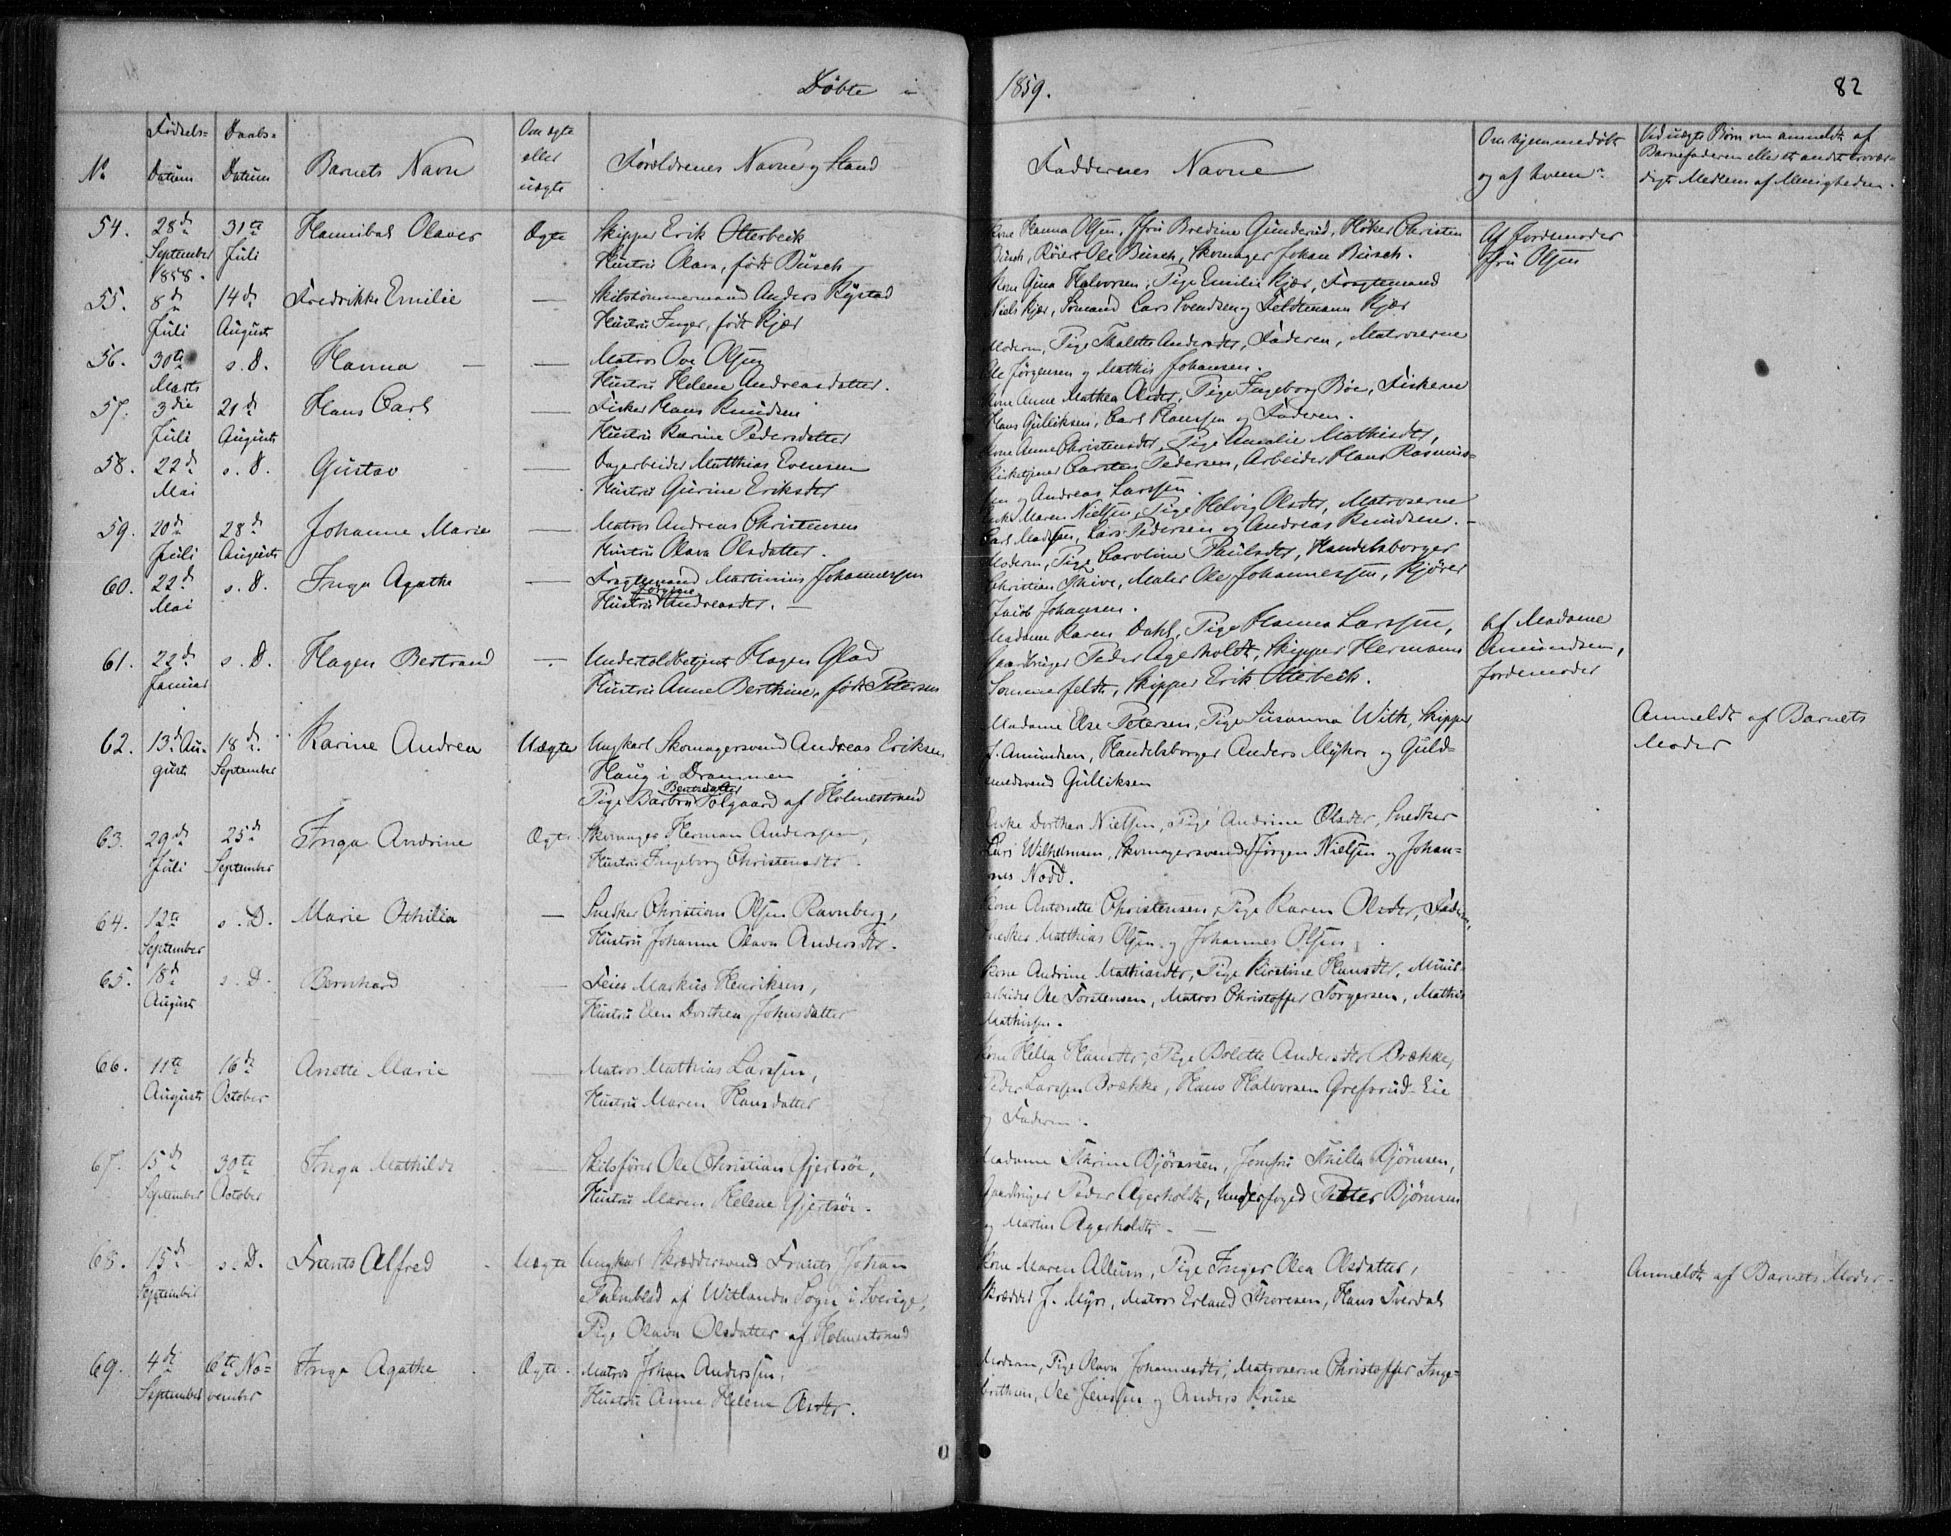 Döbte i 1859. 82
No Fødsels-Datum Daabs-Datum Barnets Navn Om ægte eller uægte Forældrenes Navne og Stand Faddernes Navne Om hjemmedøbt og af hvem? Ved uægte Børn om anmeldt af Barnefaderen eller et andet troværdigt Medlem af Menigheden.
54. 28de September 1858. 31te Juli Hannibal Olaves Ægte Skipper Erik Otterbeck
Hustru Olava, født Busch
Kone Hanna Olsen, Fru Bredine Gunderud, Høker Christen
Busch, Ole Busch, Skomager Johan Busch.
Af Jordemoder
Fru Olsen
55. 8de Juli 14de August Fredrikke Emilie — Skibstømmermand Anders Rystad
Hustru Inger, født Kjær
Kone Gina Halvorsen, Pige Emilie Kjær, Fragtemand
Niels Kjær, Sømand Lars Svendsen og Feldtmann Kjær
56. 30te Marts s. D. Hanna — Matros Ove Olsen
Hustru Helene Andreasdatter.
Moderen, Pige Thalette Andersdtr, Faderen, Matroserne
Ole Jørgensen og Mathis Johansen.
57. 3die Juli 21de August Hans Carl — Fisker Hans Knudsen
Hustru Karine Pedersdatter
Kone Anne Mathea Olsdtr, Pige Ingeborg Bøe, Fiskerne
Hans Gulliksen, Carl Hansen og Faderen.
58. 22de Mai s. D. Gustav — Dagarbeider Matthias Evensen
Hustru Gurine Eriksdtr
Kone Anne Christensdtr, Pige Amalie Mathisdtr,
Kirketjener Carsten Pedersen, Arbeider Hans Rasmus-
sen og Andreas Larssen.
59. 20de Juli 28de August Johanne Marie — Matros Andreas Christensen
Hustru Olava Olsdatter.
Enke Maren Nielsen, Pige Helvig Olsdtr, Matroserne
Carl Madsen, Lars Pedersen og Andreas Knudsen.
60. 22de Mai s. D. Inga Agathe — Fragtemand Martinius Johannessen
Hustru Jørgine Andreasdtr. —
Moderen, Pige Caroline Paulsdtr, Handelsborger
Christian Skive, Maler Ole Johannessen, Kjører
Jacob Johansen.
61. 22de Januar s. D. Hagen Bertrand — Undertoldbetjent Hagen Glad
Hustru Anne Berthine, født Petersen
Madame Karen Dahl, Pige Hanna Larssen,
Gaardbruger Peder Agerholdt, Skipper Hermann
Sommerfeldt, Skipper Erik Otterbeck.
Af Madame
Amundsen,
Jordemoder
62. 13de August 18de September Karine Andrea Uægte Ungkarl Skomagersvend Andreas Eriksen
Haug i Drammen
Pige Barbro Berntsdatter Solgaard af Holmestrand
Madame Else Petersen, Pige Susanna With, Skipper
J. Amundsen, Handelsborger Anders Myhre og Guld-
smedsvend Gulliksen
Anmeldt af Barnets
Moder
63. 29de Juli 25de September Inga Andrine Ægte Skomager Herman Anderssen,
Hustru Ingeborg Christensdtr
Enke Dorthea Nielsen, Pige Andrine Olsdtr, Snedker
Lars Wilhelmsen, Skomagersvend Jørgen Nielsen og Johan-
nes Nodd.
64. 12te September s. D. Marie Othilia — Snedker Christian Olsen Ravnberg,
Hustru Johanne Olava Andersdtr.
Kone Antonette Christensen, Pige Karen Olsdtr, Faderen,
Snedker Matthias Olsen og Johannes Olsen.
65. 18de August s. D. Bernhard — Feier Markus Henriksen,
Hustru Elen Dorthea Johnsdatter
Kone Andrine Mathiasdtr, Pige Kirstine Hansdtr, Muur-
arbeider Ole Torstensen, Matros Christoffer Torgersen, Mathis
Mathissen.
66. 11te August 16de October Anette Marie — Matros Matthias Larssen,
Hustru Maren Hansdatter
Kone Helea Hansdtr, Pige Bolette Andersdtr Brække,
Peder Larssen Brække, Hans Halvorsen Greferud-Eie
og Faderen.
67. 15de September 30te October Inga Mathilde — Skibsfører Ole Christian Gjertsøe,
Hustru Maren Helene Gjertsøe.
Madame Thrine Bjørnsen, Jomfru Thilla Bjørnsen,
Gaardbruger Peder Agerholdt, Underfoged Petter Bjørnsen
og Martin Agerholdt. —
68. 15de September s. D. Frants Alfred Uægte Ungkarl Skræddersvend Frants Johan
Palmblad af Witlanda Sogn i Sverige,
Pige Olava Olsdatter af Holmestrand
Kone Maren Allum, Pige Inger Olea Olsdatter,
Skrædder J. Myre, Matros Erland Thoresen, Hans Tverdal
Anmeldt af Barnets Moder
69. 4de September 6te November Inga Agathe Ægte. Matros Johan Anderssen,
Hustru Anne Helene Olsdtr.
Moderen, Pige Olava Johannesdtr, Matroserne Christoffer Inge-
brethsen, Ole Jenssen og Anders Kruse